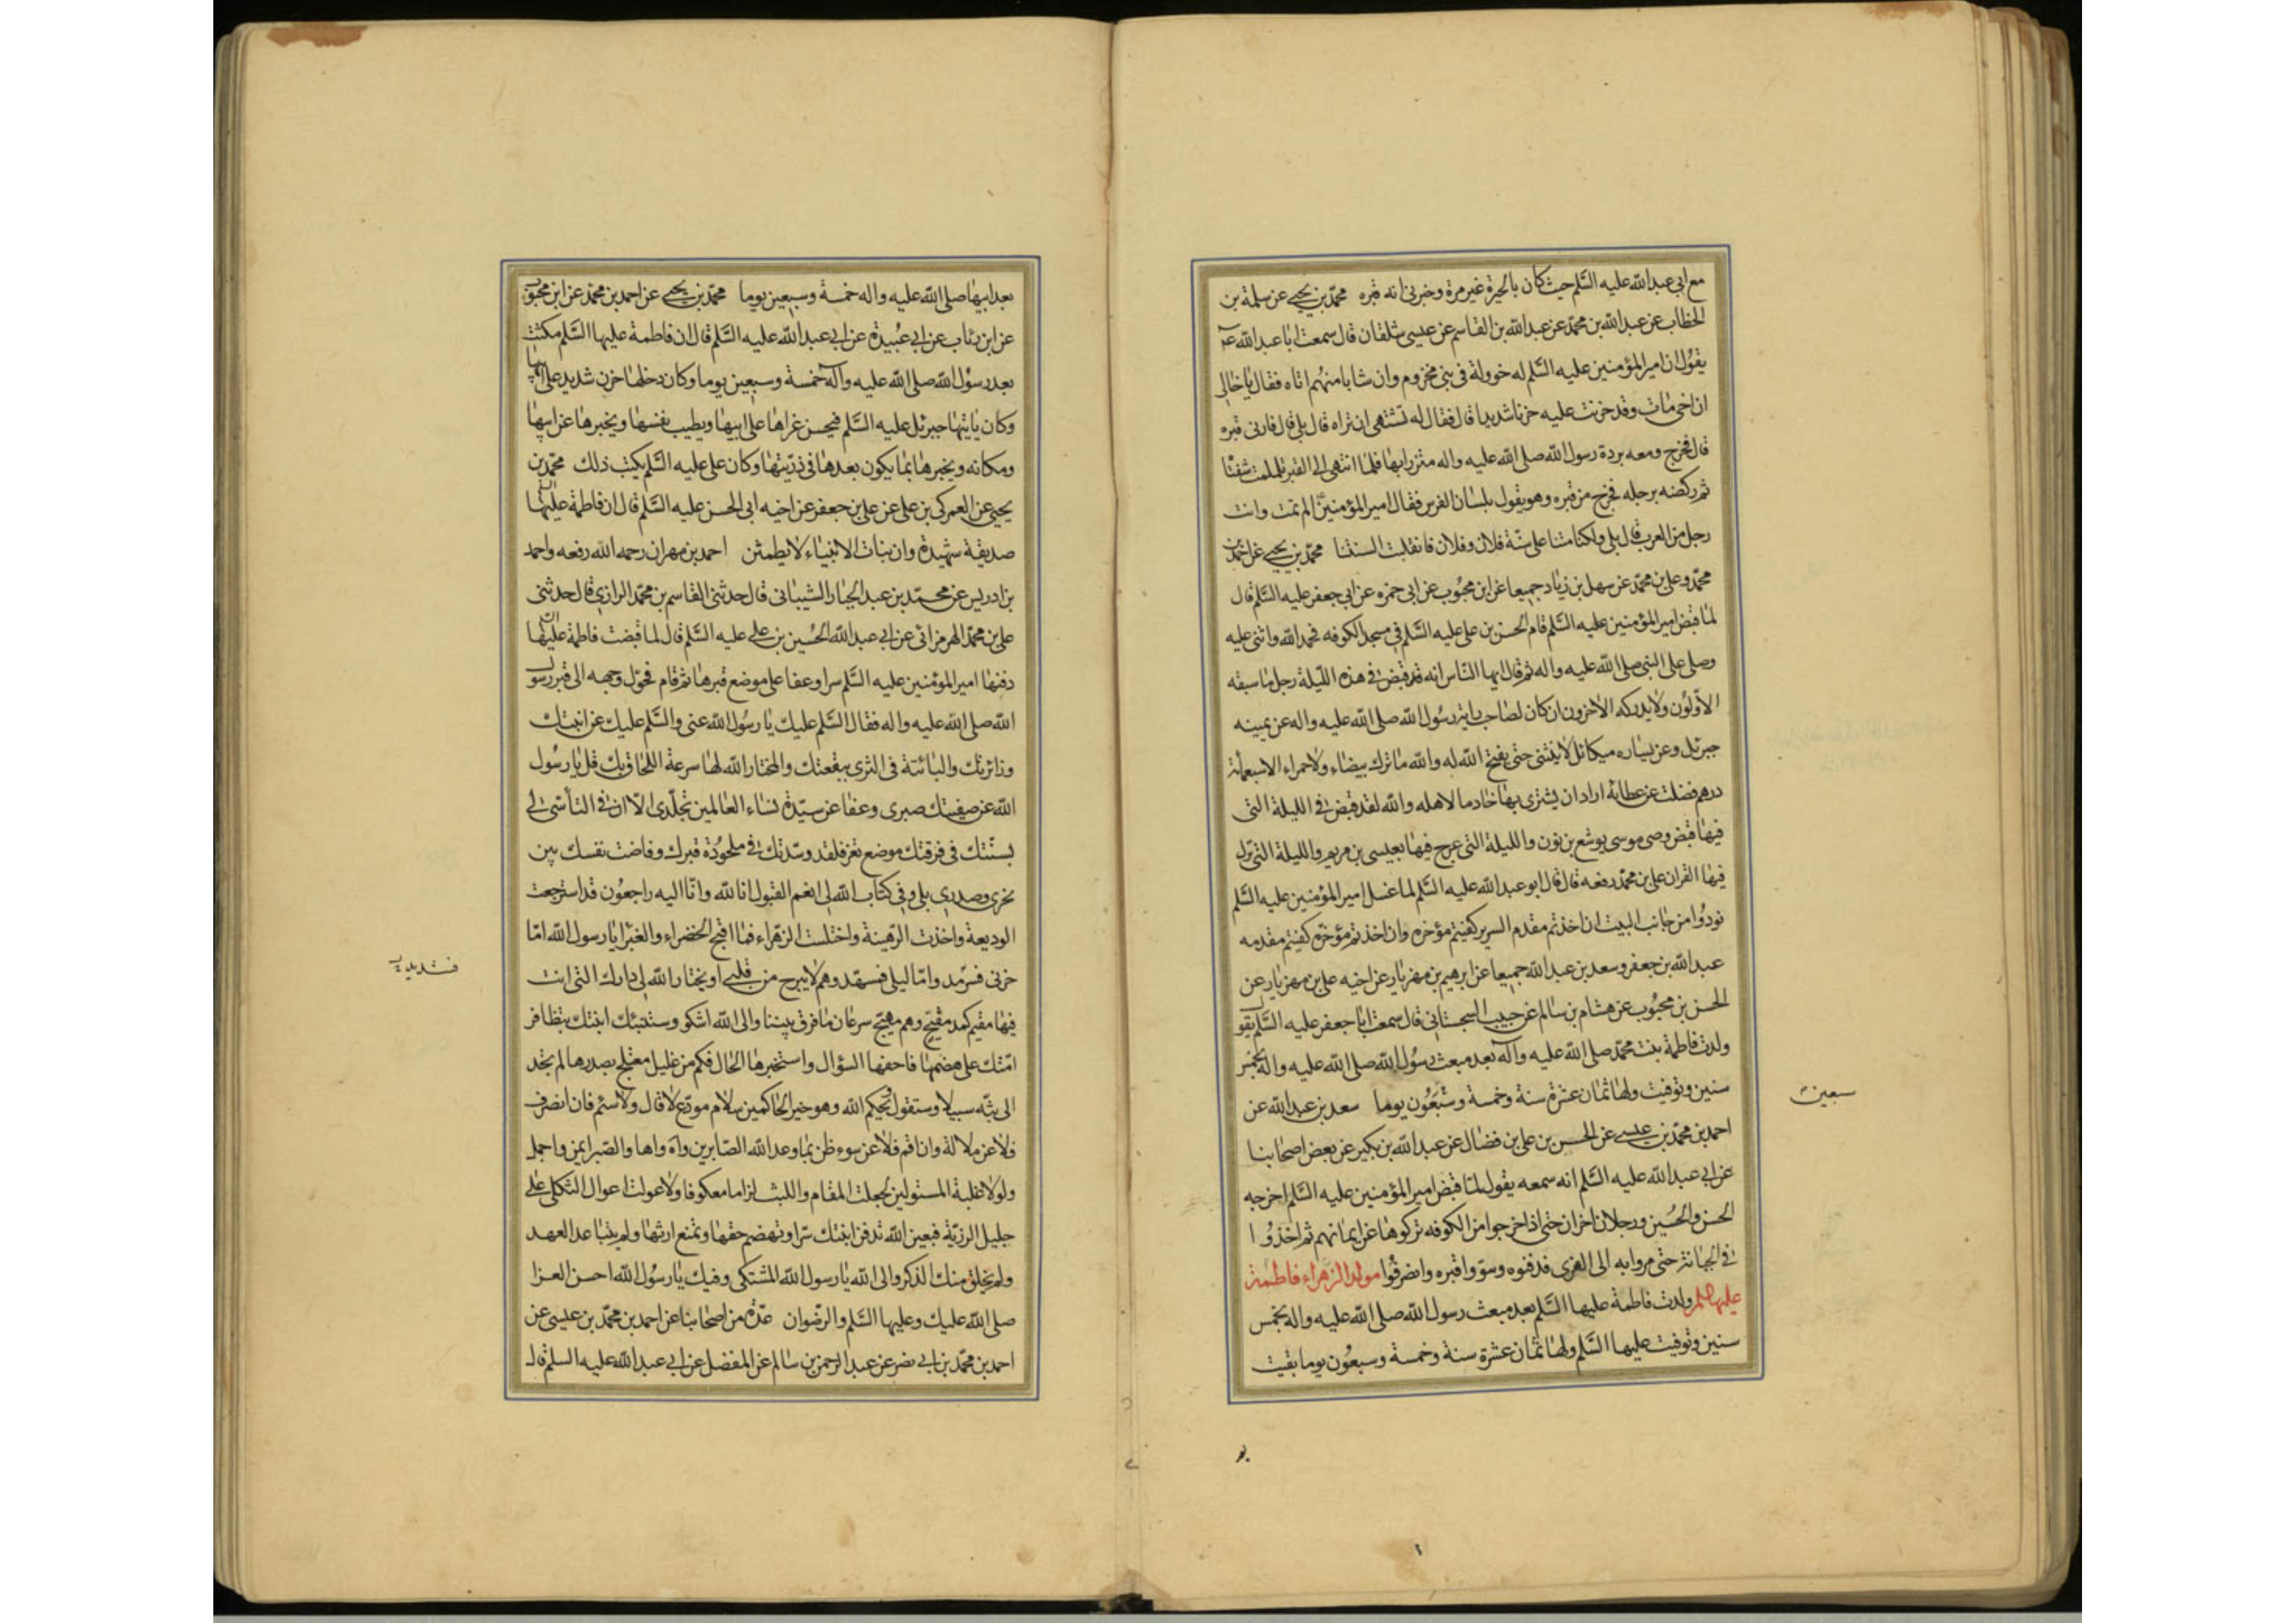 مع ابى عبدالله عليه السّلم حيث كان بالحيرة غير مرة وخبرنى انه قبره محمّد بن يحيى عن سلمة بن
الخطاب عن عبدالله بن محمّد عن عبدالله بن القاسم عن عيسى شلقان قال سمعت ابا عبدالله ع
يقول ان امير المؤمنين عليه السّلم له خوولة فى بنى مخزوم وان شابا منهم اتاه فقال يا خالى
ان اخى مات وقد حزنت عليه حزنا شديدا قال فقال له تشتهى ان تراه قال بلى قال فارنى قبره
قال فخرج ومعه بردة رسول الله صلى الله عليه واله متزرا بها فلما انتهى الى القبر تلملمت شفتا
ثم ركضه برجله فخرج من قبره وهو يقول بلسان الفرس فقال امير المؤمنين الم تمت وانت
رجل من العرب قال بلى ولكنا متنا على سنّة فلان وفلان فانقلبت السنتنا محمّد بن يحيى عن احمد بن
محمّد وعلى بن محمّد عن سهل بن زياد جميعا عن ابن محبوب عن ابى حمزه عن ابى جعفر عليه السّلم قال
لما قبض امير المؤمنين عليه السّلم قام الحسن بن على عليه السّلم فى مسجد الكوفه فحمد الله واثنى عليه
وصلى على النبى صلى الله عليه واله ثم قال ايها الناس انه قد قبض فى هذه الليلة رجل ما سبقه
الاوّلون ولا يدركه الاخرون ان كان لصاحب راية رسول الله صلى الله عليه واله عن يمينه
جبرئل وعن يساره ميكائل لا ينثنى حتى يفتح الله له والله ما ترك بيضاء ولا حمراء الا سبعمأة
درهم فضلت عن عطائه اراد ان يشترى بها خادما لاهله والله لقد قبض فى الليلة التى
فيها قبض وصى موسى يوشع بن نون والليلة التى عرج فيها بعيسى بن مريم والليلة التى نزل
فيها القران على بن محمّد رفعه قال قال ابو عبدالله عليه السّلم لما غسل امير المؤمنين عليه السّلم
نودوا من جانب البيت ان اخذتم مقدم السرير كفيتم مؤخره وان اخذتم مؤخره كفيتم مقدمه
عبدالله بن جعفر وسعد بن عبدالله جميعا عن ابرهيم بن مهزيار عن اخيه على بن مهزيار عن
الحسن بن محبوب عن هشام بن سالم عن حبيب السجستانى قال سمعت ابا جعفر عليه السّلم يقول
ولدت فاطمة بنت محمّد صلى الله عليه وآله بعد مبعث رسول الله صلى الله عليه واله بخمس
سنين وتوفيت ولها ثمان عشرة سنة وخمسة وسبعون يوما سعد بن عبدالله عن
سبعين
احمد بن محمّد بن عيسى عن الحسن بن على بن فضال عن عبدالله بن بكير عن بعض اصحابنا
عن ابى عبدالله عليه السّلم انه سمعه يقول لما قبض امير المؤمنين عليه السّلم اخرجه
الحسن والحسين ورجلان اخران حتى اذا خرجوا من الكوفه تركوها عن ايمانهم ثم اخذوا
فى الجبانة حتى مروا به الى الغرى فدفنوه وسوّوا قبره وانصرفوا مولد الزهراء فاطمة
عليها السلم ولدت فاطمة عليها السّلم بعد مبعث رسول الله صلى الله عليه واله بخمس
سنين وتوفيت عليها السّلم ولها ثمان عشرة سنة وخمسة وسبعون يوما بقيت
بعد ابيها صلى الله عليه واله خمسة وسبعين يوما محمّد بن يحيى عن احمد بن محمّد عن ابن محبوب
عن ابن رئاب عن ابى عبيدة عن ابى عبدالله عليه السّلم قال ان فاطمة عليها السّلم مكثت
بعد رسول الله صلى الله عليه وآله خمسة وسبعين يوما وكان دخلها حزن شديد على ابيها
وكان ياتيها جبرئل عليه السّلم فيحسن عزاها على ابيها ويطيب نفسها ويخبرها عن ابيها
ومكانه ويخبرها بما يكون بعدها فى ذرّيتها وكان على عليه السّلم يكتب ذلك محمّد بن
يحيى عن العمركى بن على عن على بن جعفر عن اخيه ابى الحسن عليه السّلم قال ان فاطمة عليها السّلم
صديقة شهيدة وان بنات الانبياء لا يطمثن احمد بن مهران رحمه الله رفعه واحمد
بن ادريس عن محمّد بن عبدالجبار الشيبانى قال حدثنى القاسم بن محمّد الرازى قال حدثنى
على بن محمّد الهرمزانى عن ابى عبدالله الحسين بن على عليه السّلم قال لما قبضت فاطمة عليها السّلم
دفنها امير المؤمنين عليه السّلم سرا وعفا على موضع قبرها ثم قام فحوّل وجهه الى قبر رسول
الله صلى الله عليه واله فقال السّلم عليك يا رسول الله عنى والسّلم عليك عن ابنتك
وزائرتك والبائتة فى الثرى ببقعتك والمختار الله لها سرعة اللحاق بك قل يا رسول
الله عن صفيتك صبرى وعفا عن سيّدة نساء العالمين تجلّدى الّا ان فى التأسّى لى
بسنّتك فى فرقتك موضع تعز فلقد وسّدتك فى ملحودة قبرك وفاضت نفسك بين
نحرى وصدرى بلى وفى كتاب الله لى انعم القبول انا لله وانّا اليه راجعون قد استرجعت
الوديعة واخذت الرّهينة واختلست الزهراء فما اقبح الخضراء والغبرا يا رسول الله امّا
حزنى فسرمد وامّا ليلى فمسهّد وهم لا يبرح من قلبى او يختار الله لى دارك التى انت
فيها مقيم كمد مقيّح وهم مهيّج سرعان ما فرق بيننا والى الله اشكو وستنبئك ابنتك بتظافر
امّتك على هضمها فاحفها السؤال واستخبرها الحال فكم من غليل معتلج بصدرها لم تجد
الى بثّه سبيلا وستقول ويحكم الله وهو خير الحاكمين سلام مودّع لا قال ولا سئم فان انصرف
فلا عن ملالة وان اقم فلا عن سوء ظن بما وعد الله الصّابرين واه واها والصّبر ايمن واجمل
ولولا غلبة المستولين لجعلت المقام واللبث لزاما معكوفا ولاعولت اعوال الثكلى على
جليل الرزيّة فبعين الله تدفن ابنتك سرّا وتهضم حقها وتمنع ارثها ولم يتباعد العهد
ولم يخلق منك الذكر والى الله يا رسول الله المشتكى وفيك يا رسول الله احسن العزا
صلى الله عليك وعليها السّلم والرّضوان عدّة من اصحابنا عن احمد بن محمّد بن عيسى عن
احمد بن محمّد بن ابى نصر عن عبدالرحمن بن سالم عن المفضل عن ابى عبدالله عليه السلم قال